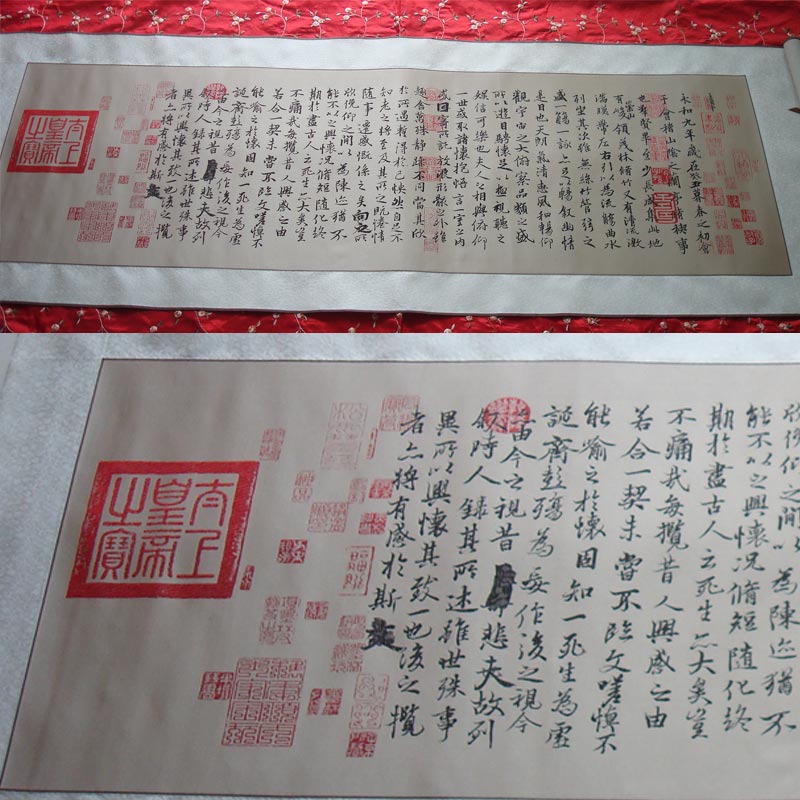 永和九年歲在癸丑暮春之初會
于會稽山陰之蘭亭脩稧事
也羣賢畢至少長咸集此地
有崇山峻領茂林脩竹又有清流激
湍暎帶左右引以為流觴曲水
列坐其次雖無絲竹管弦之
盛一觴一詠亦足以暢敘幽情
是日也天朗氣清惠風和暢仰
觀宇宙之大俯察品類之盛
所以遊目騁懷足以極視聽之
娛信可樂也夫人之相與俯仰
一世或取諸懷抱悟言一室之內
或因寄所託放浪形骸之外雖
趣舍萬殊靜躁不同當其欣
於所遇暫得於己怏然自足不
知老之將至及其所之既惓情
隨事遷感慨係之矣向之所
欣俛仰之間以為陳迹猶不
能不以之興懷況脩短隨化終
期於盡古人云死生亦大矣豈
不痛哉每攬昔人興感之由
若合一契未嘗不臨文嗟悼不
能喻之於懷固知一死生為虛
誕齊彭殤為妄作後之視今
亦由今之視昔悲夫故列
敘時人錄其所述雖世殊事
異所以興懷其致一也後之攬
者亦將有感於斯文
太上
皇帝
之寶
欣俛仰之間以為陳迹猶不
能不以之興懷況脩短隨化終
期於盡古人云死生亦大矣豈
不痛哉每攬昔人興感之由
若合一契未嘗不臨文嗟悼不
能喻之於懷固知一死生為虛
誕齊彭殤為妄作後之視今
亦由今之視昔悲夫故列
敘時人錄其所述雖世殊事
異所以興懷其致一也後之攬
者亦將有感於斯文
太上
皇帝
之寶